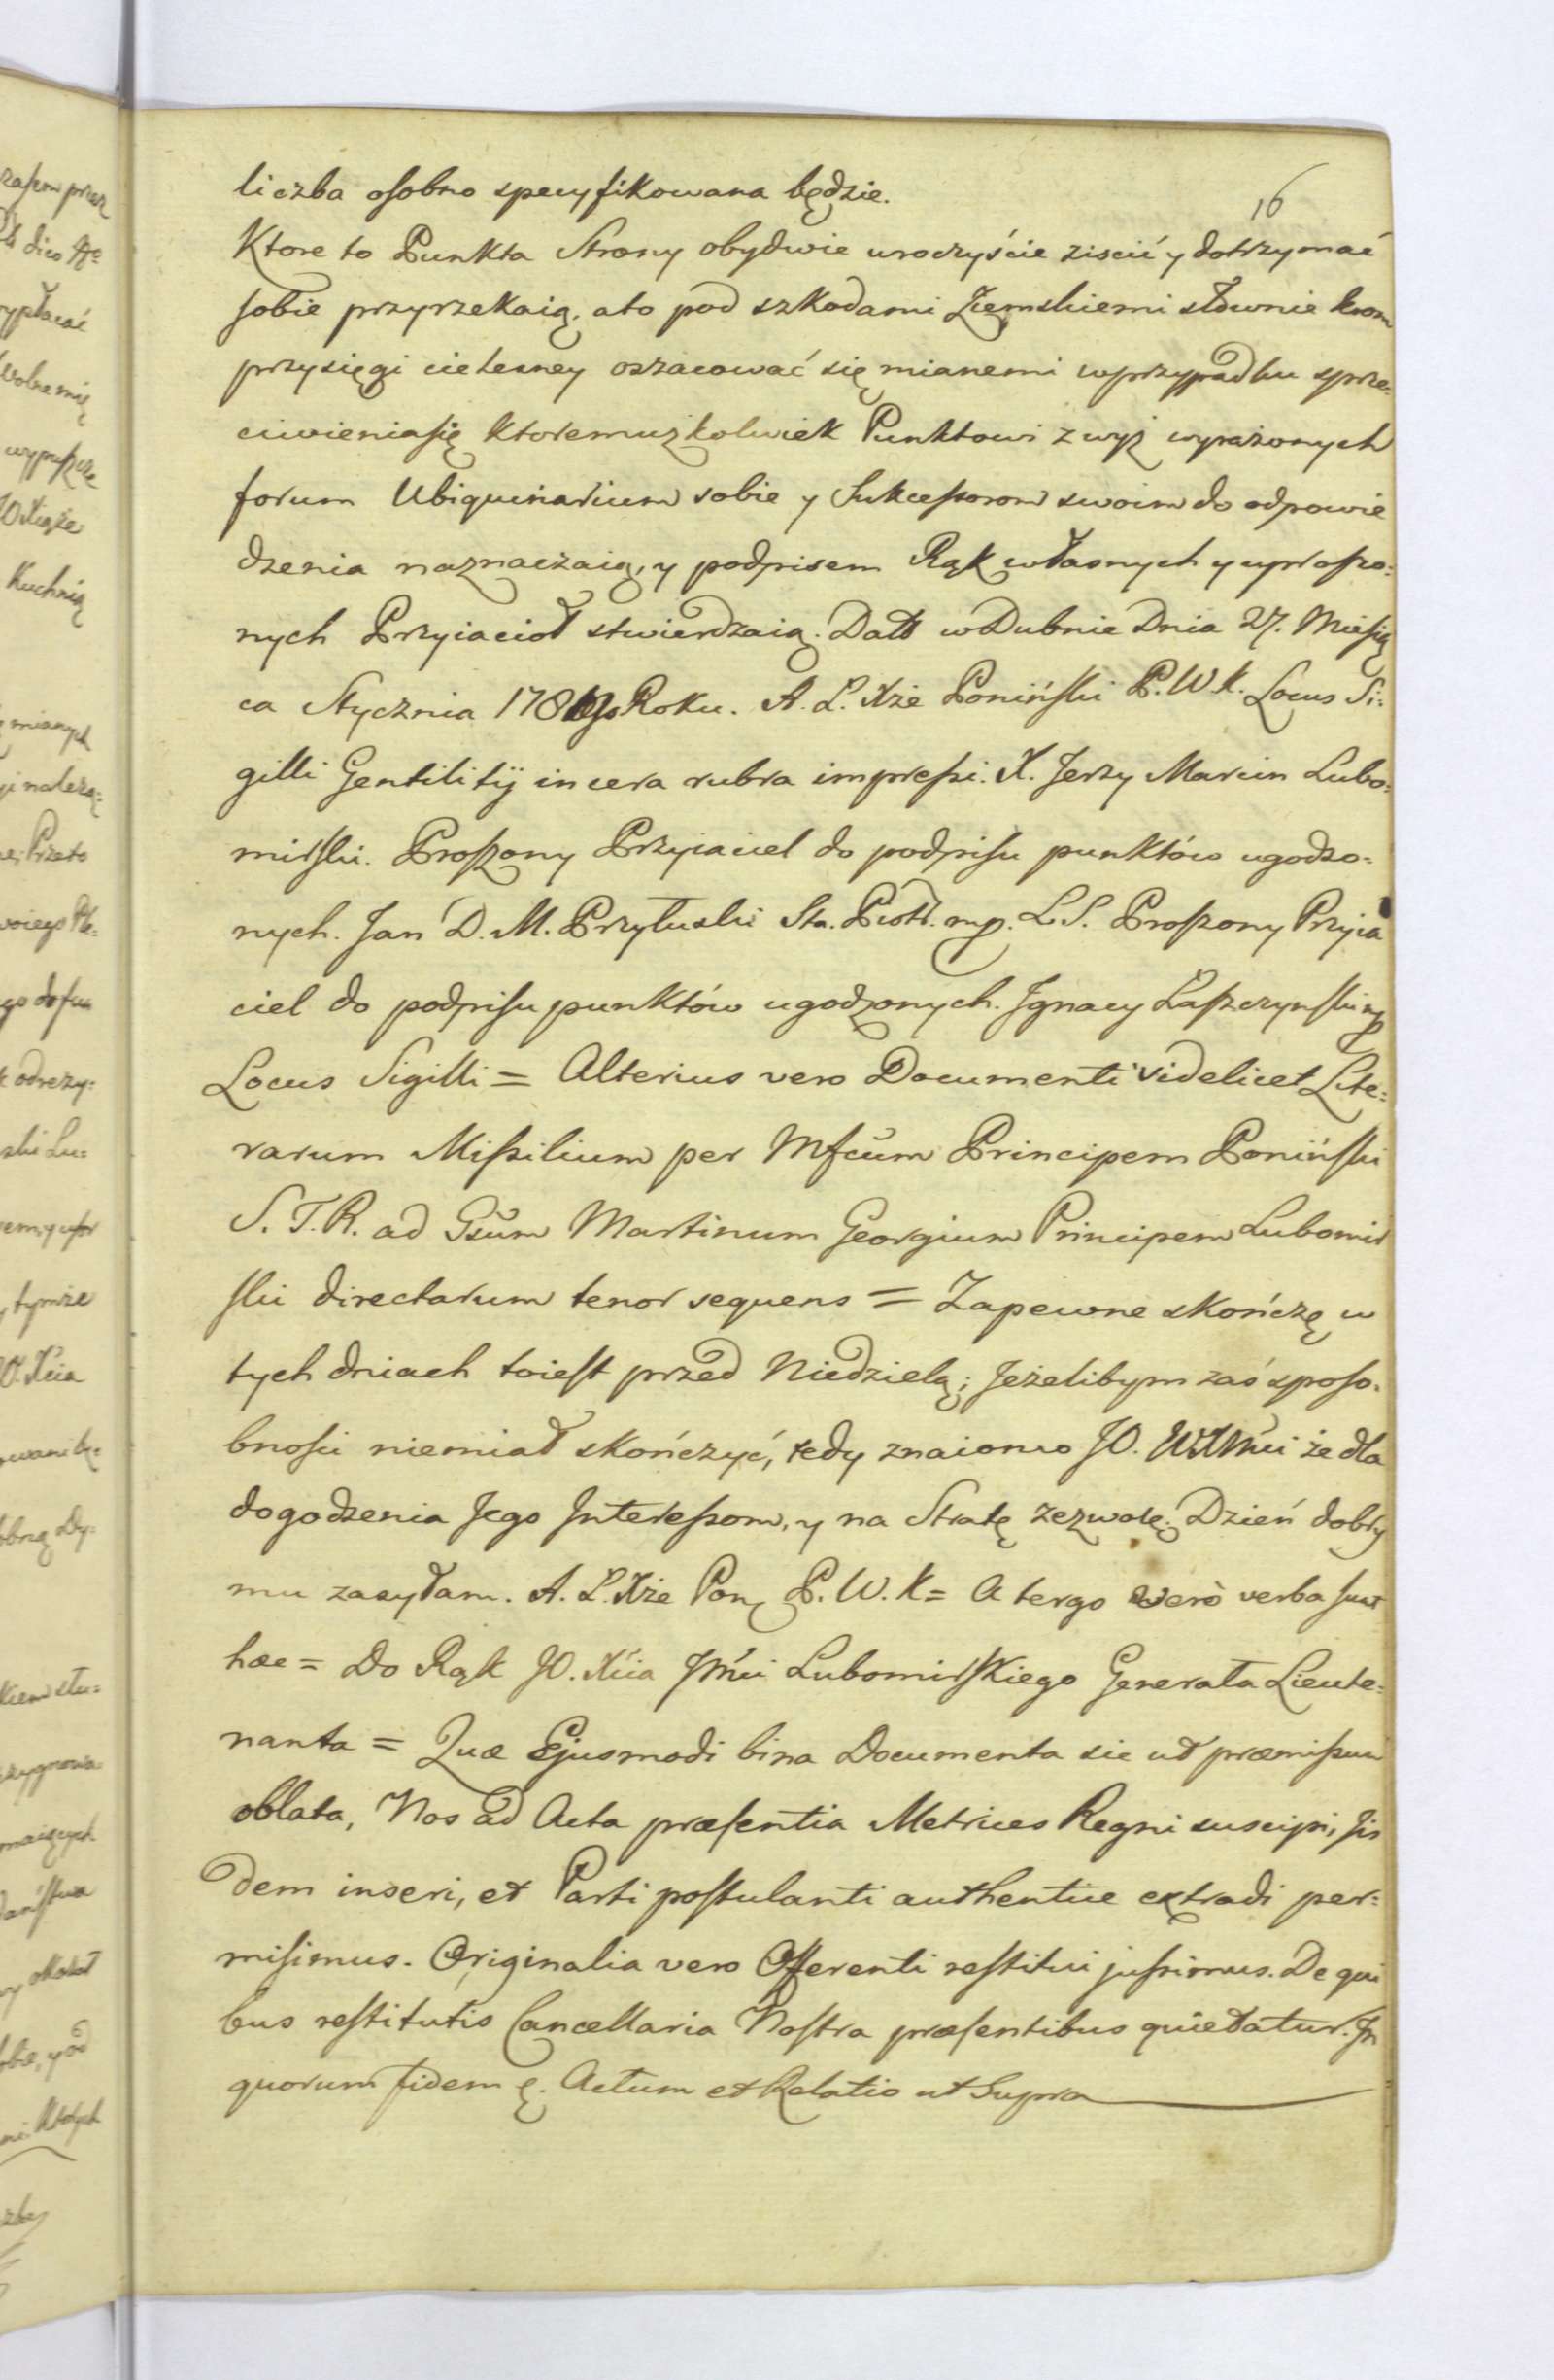 16
liczba osobno specyfikowana będzie.
Ktore to Punkta Strony obydwie uroczyście ziscić y dotrzymać
sobie przyrzekaią, a to pod szkodami Ziemskiemi słownie krom
przysięgi cielesney oszacować się mianemi w przypadku sprze=
ciwienia się ktoremuzkolwiek Punktowi zwyż wyrażonych
forum Ubiquinarium sobie y Sukcessorom swoim do odpowie
dzenia naznaczaią, y podpisem Rąk własnych y uproszo=
nych Przyiacioł stwierdzaią. Datt w Dubnie Dnia 27. Miesią
ca Stycznia Roku. A. L. Xże Poniński P. W. K. Locus Si=
gilli Gentilitij in cera rubra impressi. X. Jerzy Marcin Lubo=
mirski. Proszony Przyiaciel do podpisu punktów ugodzo=
nych. Jan D. M. Przyłuski Sta. Piotr. mp. L.S. Proszony Przyia
ciel do podpisu punktów ugodzonych. Jgnacy Łaszczynski mp
Locus Sigilli = Alterius vero Documenti videlicet Lite=
rarum Missilium per Mfcum Principem Poniński
S. T. R. ad Gsum Martinum Georgium Principem Lubomir
ski directarum tenor sequens = Zapewne skończę w
tych dniach toiest przed Niedzielą; Jeżelibym zaś sposo=
bnosci niemiał skończyć, tedy znaiomo JO. że dla
dogodzenia Jego Interessom, y na Stratę zezwolę. Dzień dobry
mu zasyłam. A. L. Xże Pon. P. W. K = A tergo verò verba sunt
hæc = Do Rąk JO. Xcia Jmci Lubomirskiego Generała Lieute=
nanta = Quæ Ejusmodi bina Documenta sic ut præmissum
oblata, Nos ad Acta præsentia Metrices Regni suscipi, Jis
dem inseri, et Parti postulanti authentice extradi per=
misimus. Originalia vero Offerenti restitui jussimus. De qui
bus restitutis Cancellaria Nostra præsentibus quietatur. Jn
quorum fidem &. Actum et Relatio ut Supra